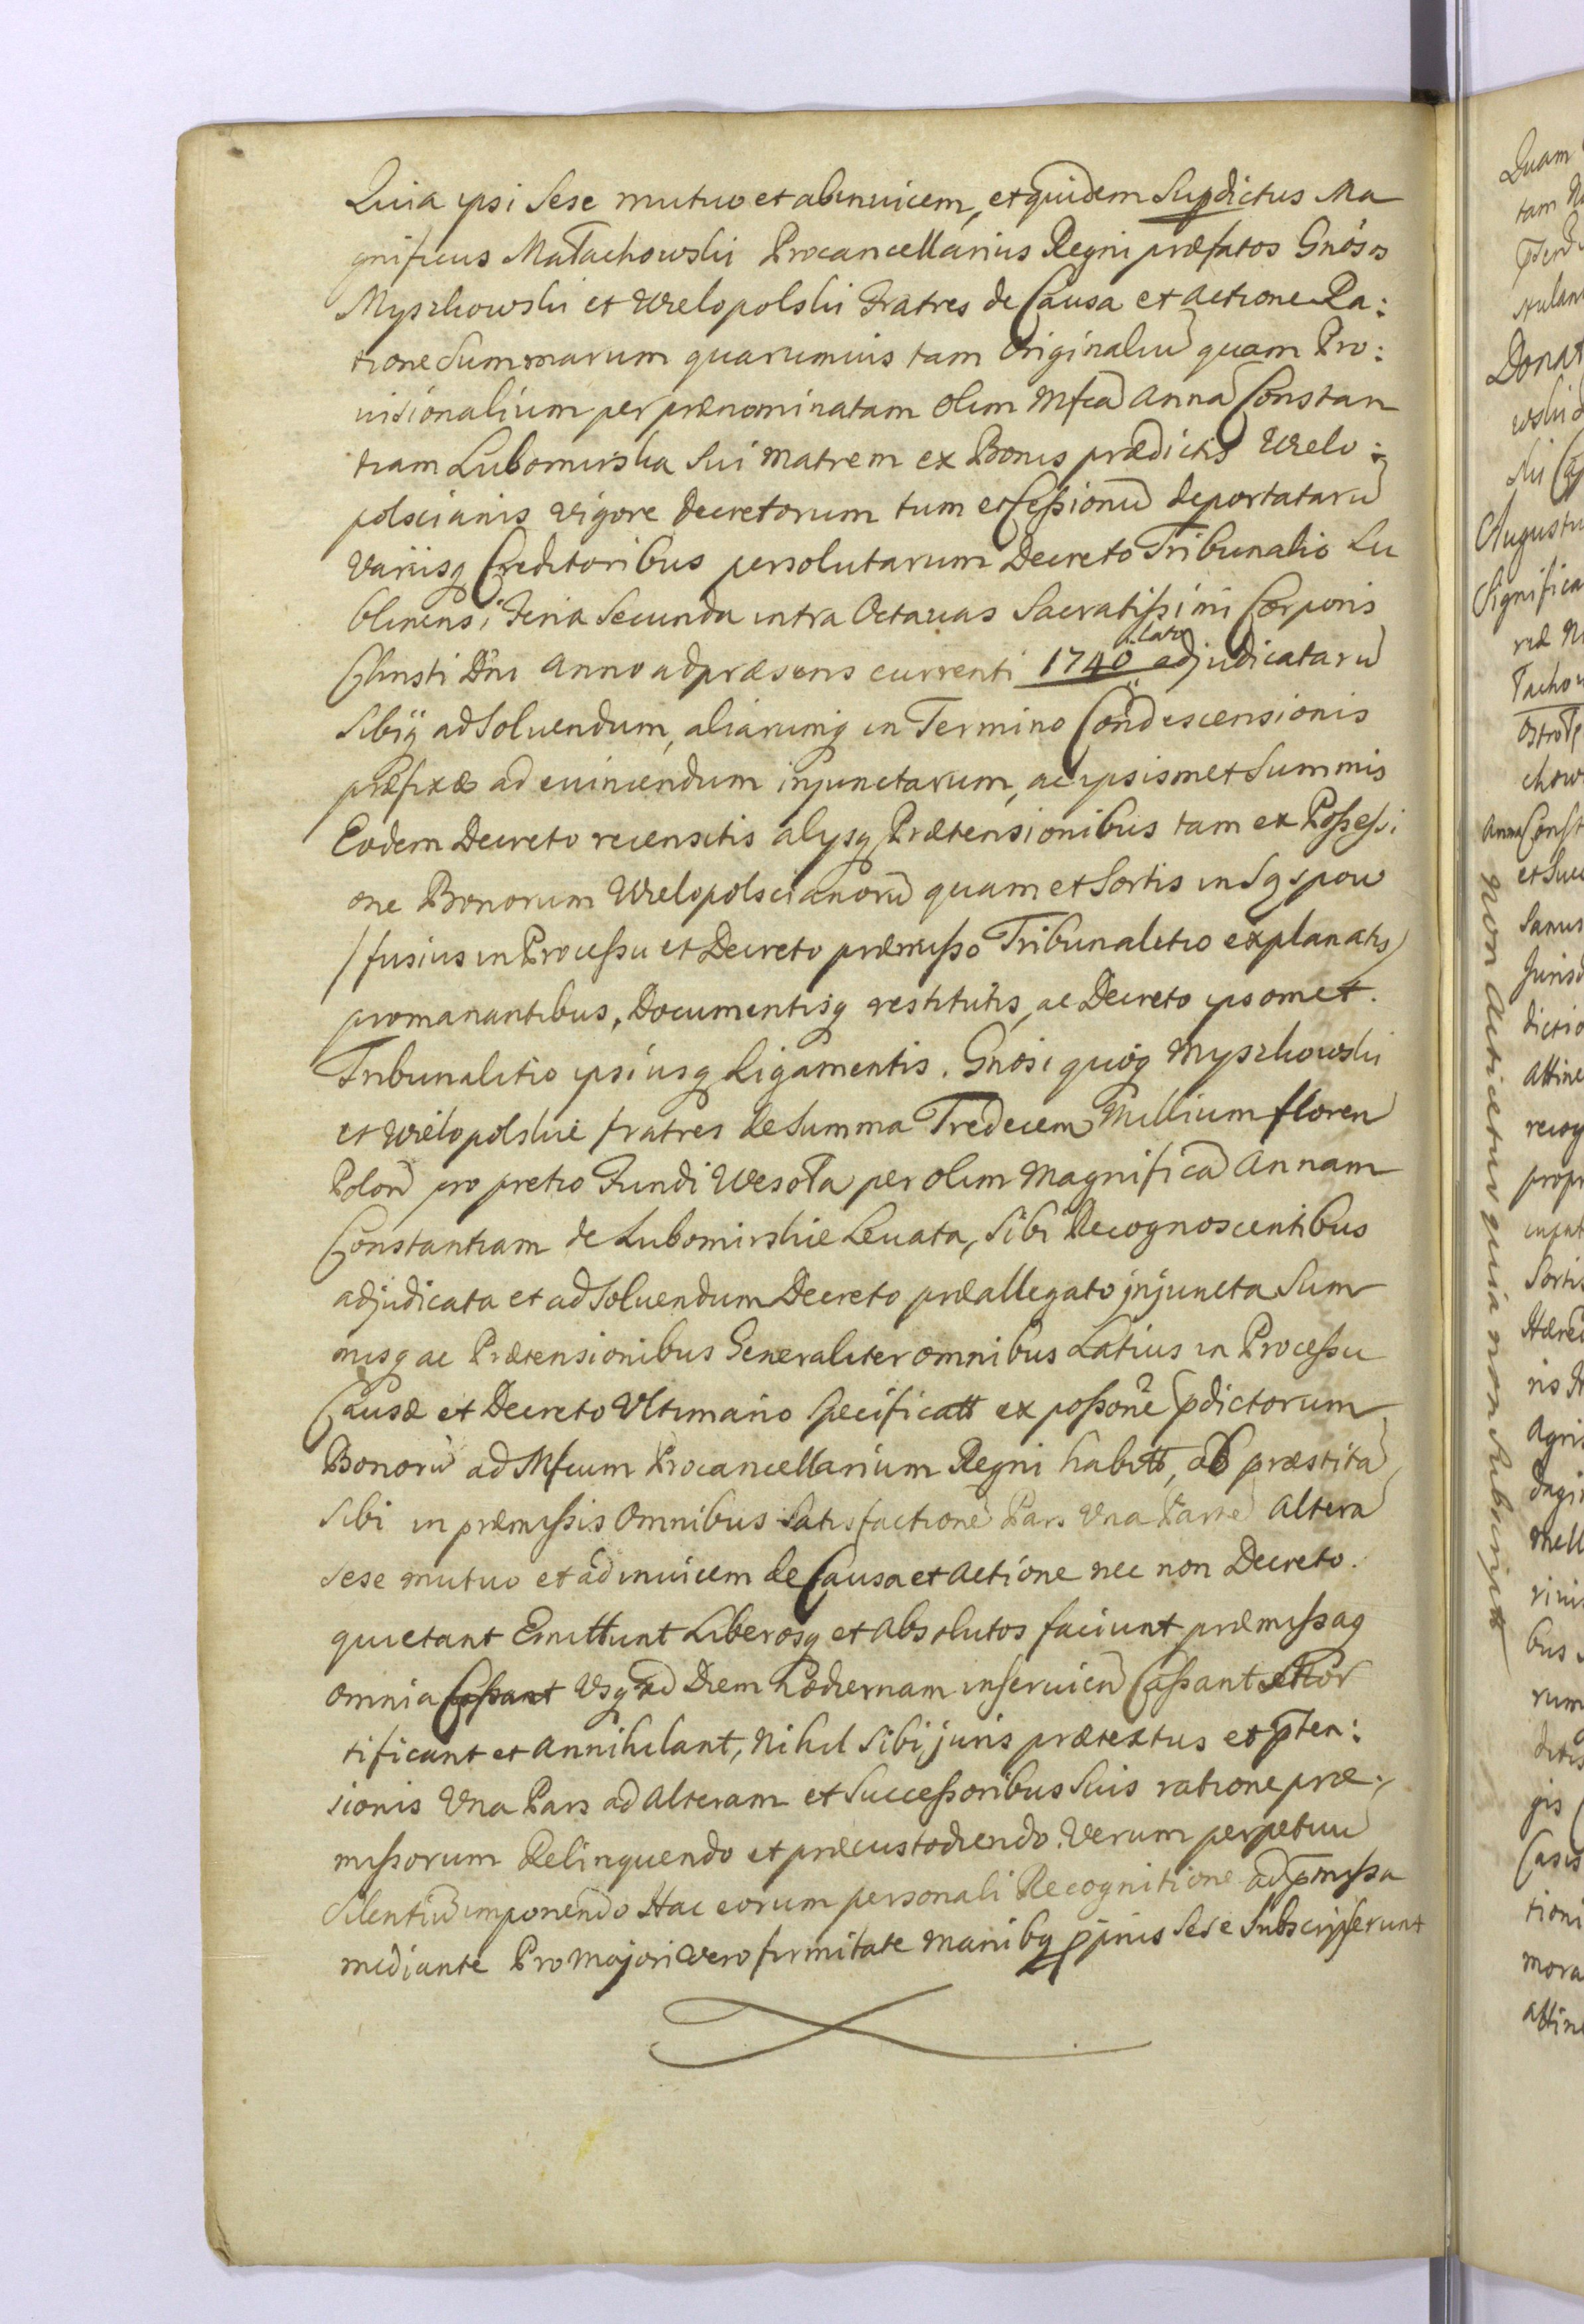 Quia ipsi Sese mutuo et abinuicem, et quidem Supdictus Ma
gnificus Małachowski Procancellarius Regni præfatos Gnosos
Myszkowski et Wielopolski Fratres de Causa et Actione Ra:
tione Summarum quarumuis tam Originaliu quam Pro:
uisionalium per prænominatam olim Mfca Anna Constan
tiam Lubomirska Sui Matrem ex Bonis prædictis Wielo:
polscianis vigore Decretorum tum et Cessionu deportataru
Varijsq Creditoribus persolutarum Decreto Tribunalio Lu
blinensi Feria Secunda intra Octauas Sacratissimi Corporis
Christi Dni Anno ad præsens currenti 1740 lato adjudicataru
Sibiq ad Soluendum, aliarumq in Termino Condescensionis
præfixæ ad euincendum injunctarum, ac ipsismet Summis
Eodem Decreto recensitis alysq Prætensionibus tam ex Possessi
one Bonorum Wielopolscianoru quam et Sortis in
/fusius in Processu et Decreto præmisso Tribunalitio explanatis/
promanantibus, Documentisq restitutis, ac Decreto ipsomet.
Tribunalitio ipsiusq Ligamentis. Gnosi quoq Myszkowski
et Wielopolskie fratres de Summa Tredecem Millium floren
Polon pro pretio Fundi Wesoła per olim Magnifica Annam
Constantiam de Lubomirskie Leuata, Sibi Recognoscentibus
adjudicata et ad Soluendum Decreto præallegato injuncta Sum
misq ac Prætensionibus Generaliter omnibus Latius in Processu
Causæ et Decreto Vltimario Specificatt ex possone pdictorum
Bonoru ad Mfcum Procancellarium Regni habitt, ob præstita
Sibi in præmissis Omnibus Satisfactione Pars Vna Parte Altera
Sese mutuo et adinuicem de Causa et Actione nec non Decreto.
quietant Emittunt Liberosq et Absolutos faciunt præmissaq
omnia Cassant Vsq ad Diem hodiernam inseruien Cassant et Mor
tificant et Annihilant, Nihil Sibi juris prætextus et pten:
sionis Vna Pars ad Alteram et Successoribus Suis ratione præ:
missorum Relinquendo et præcustodiendo. Verum perpetuu
Silentiu imponendo Hac eorum personali Recognitione ad pmissa
mediante Pro Majori vero firmitate Manibq pprijs Sese Subscripserunt
Non acticetur quia non subscript
Quam
tam
Donat
Augustu
Significa
Tachow
chow
Anna Const
et Succ
Sanus
Jurisd
dictio
attine
recog
propr
Sortis
Hæred
Agris
mell
bus
rum
gis
Casis
tioni
mora
attine